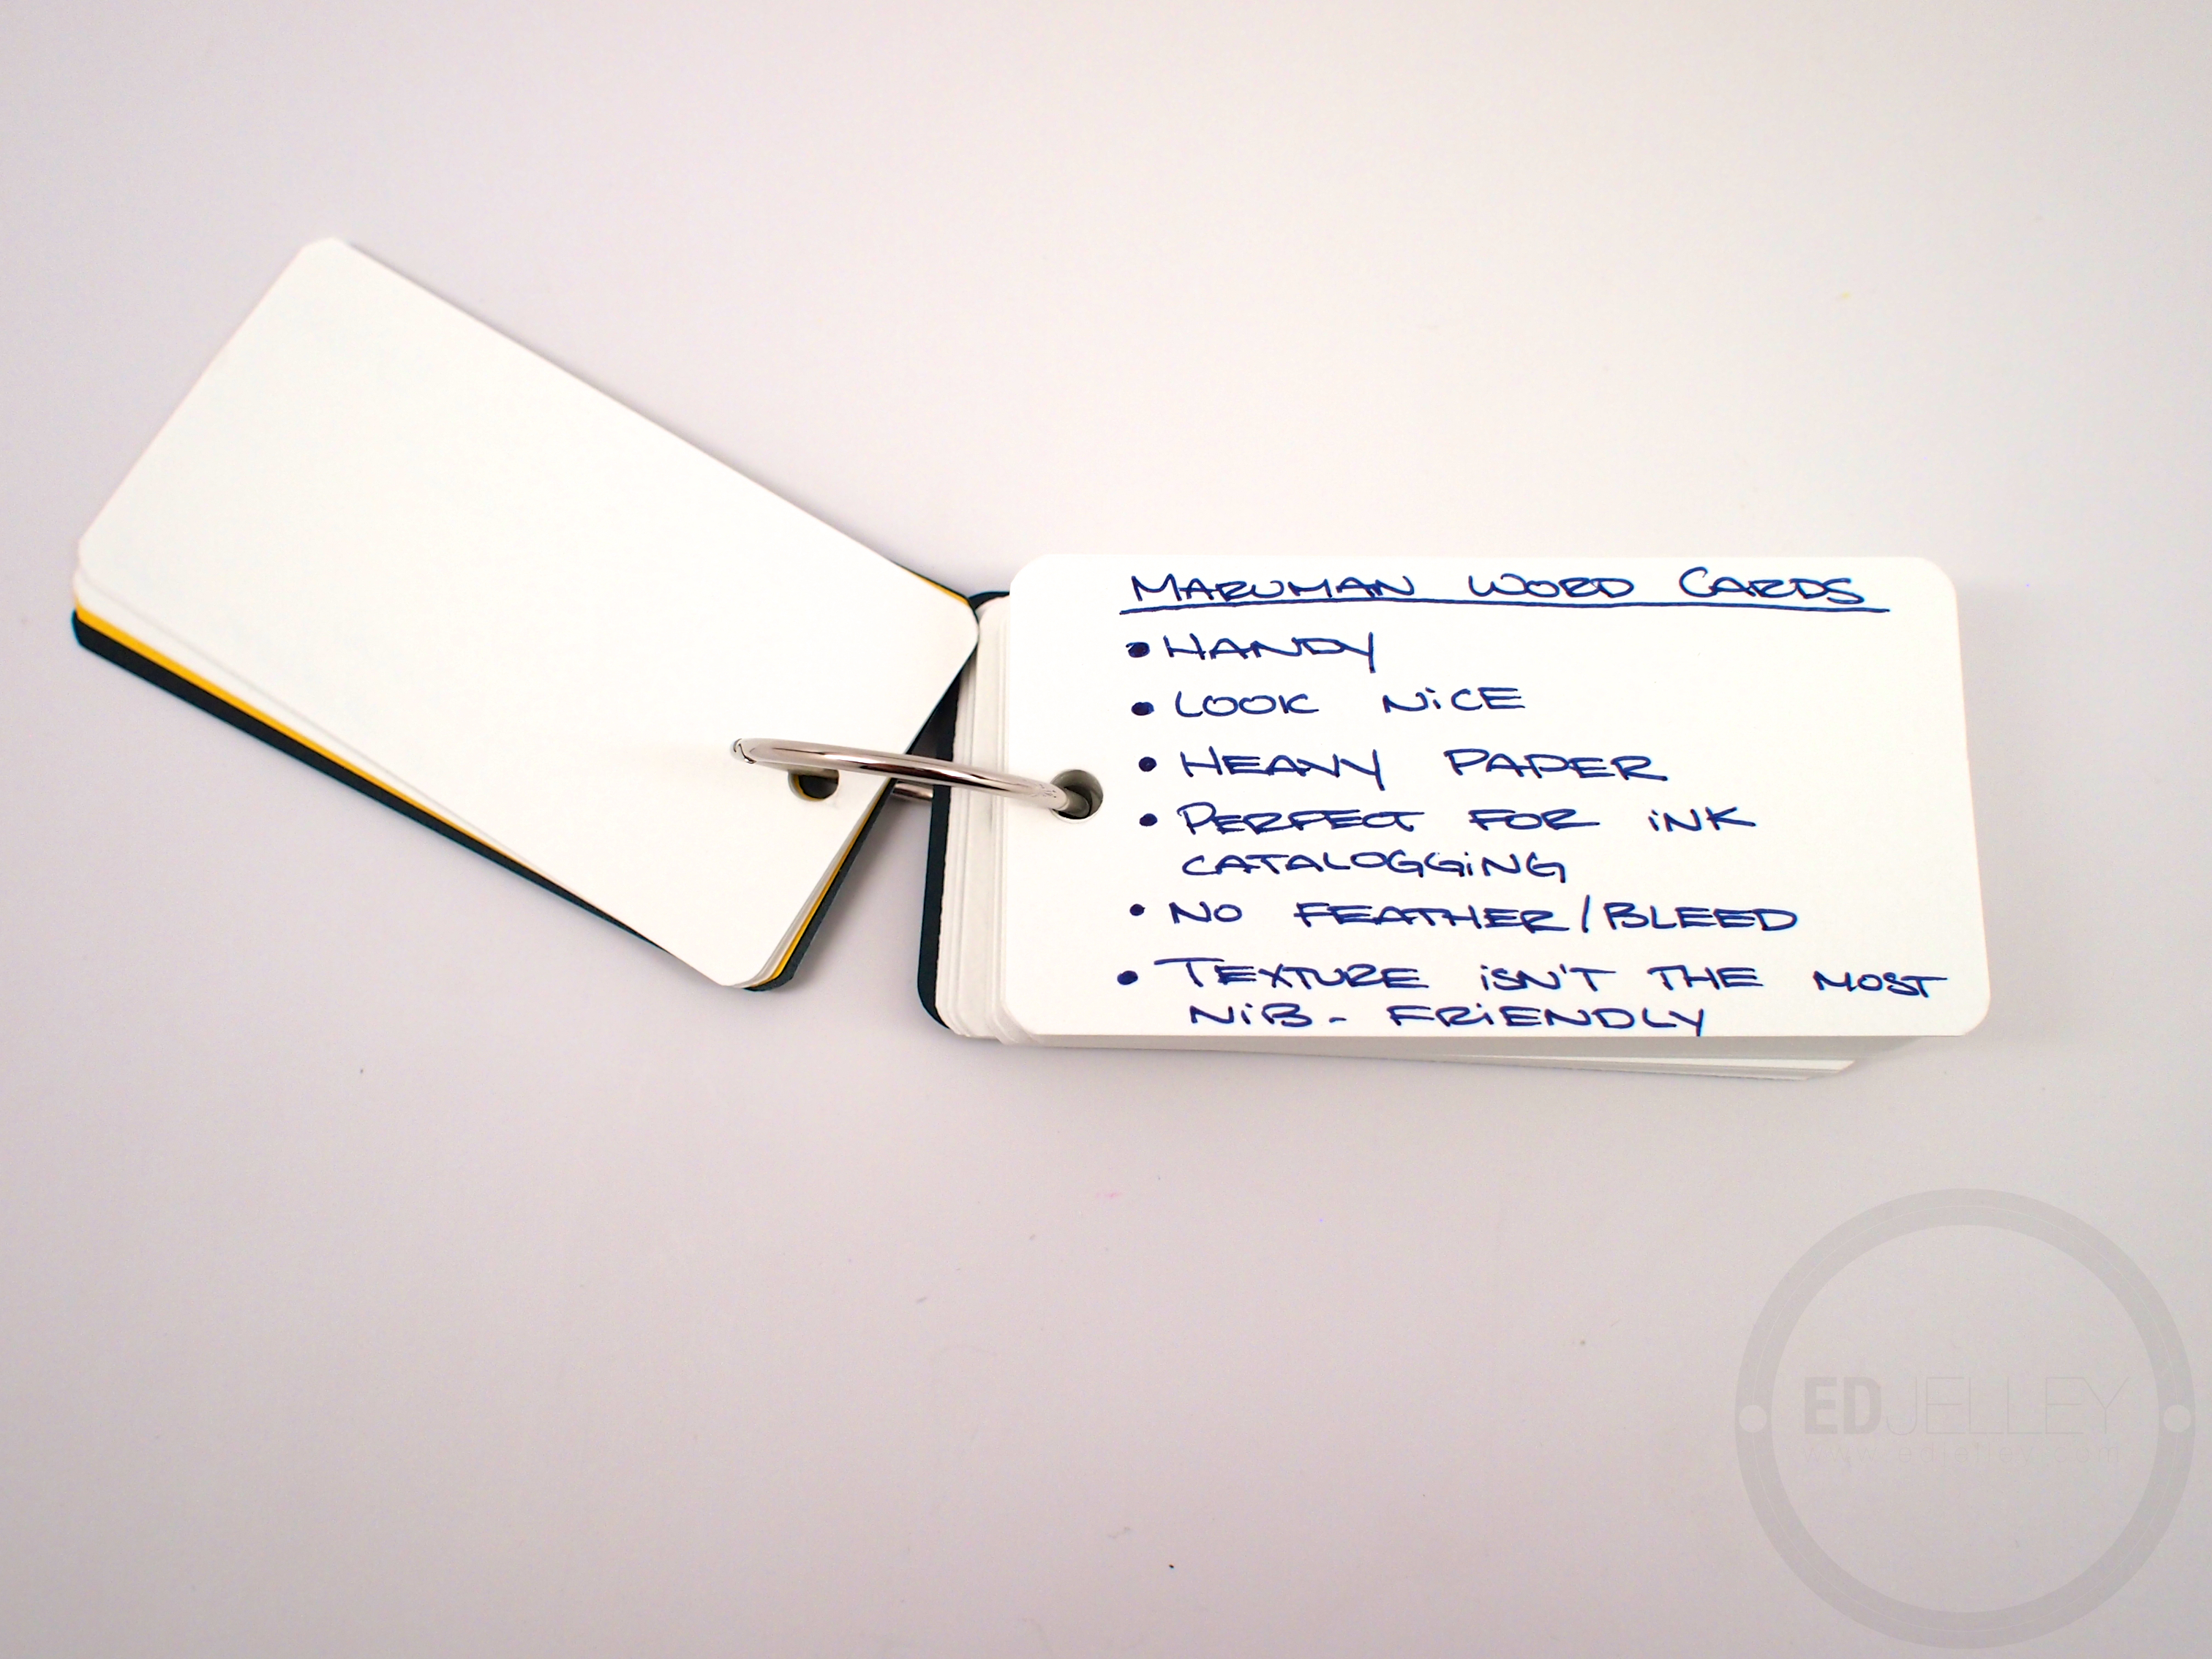 MARUMAN WORD CARDS
• HANDY
• LOOK NiCE
• HEAVY PAPER
• PERFECT FOR iNK
CATALOGGiNG
• NO FEATHER/BLEED
• TEXTURE iSN'T THE MOST
NiB- FRiENDLY
EDJELLEY
www.edjelley.com